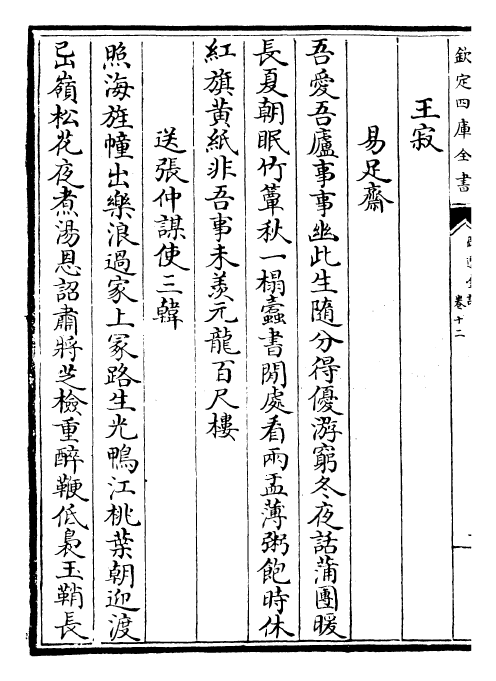 欽定四庫全書
卷十二
王寂
易足齋
吾愛吾廬事事幽此生隨分得優游窮冬夜話蒲團暖
長夏朝眠竹簟秋一榻蠹書閒處看兩盂薄粥飽時休
紅旗黄紙非吾事未羨元龍百尺樓
送張仲謀使三韓
照海旌幢出樂浪過家上冡路生光鴨江桃葉朝迎渡
岊嶺松花夜煮湯恩詔肅將芝檢重醉鞭低裊玉鞘長